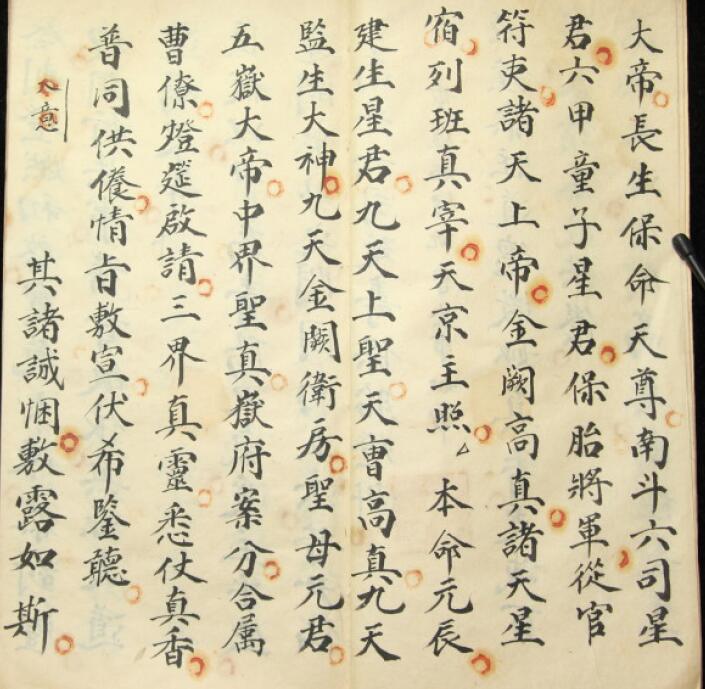 大帝長生保命天尊南斗六司星
君六甲童子星君保胎將軍從官
符吏諸天上帝金闕高真諸天星
宿列班真宰天京主照本命元辰
建生星君九天上聖天曹高真九天
監生大神九天金闕衛房聖母元君
五嶽大帝中界聖真嶽府案分合属
曹僚燈筵啟請三界真靈悉仗真香
普同供養情旨敷宣伏希鑒聽
入意
其諸誠悃敷露如斯